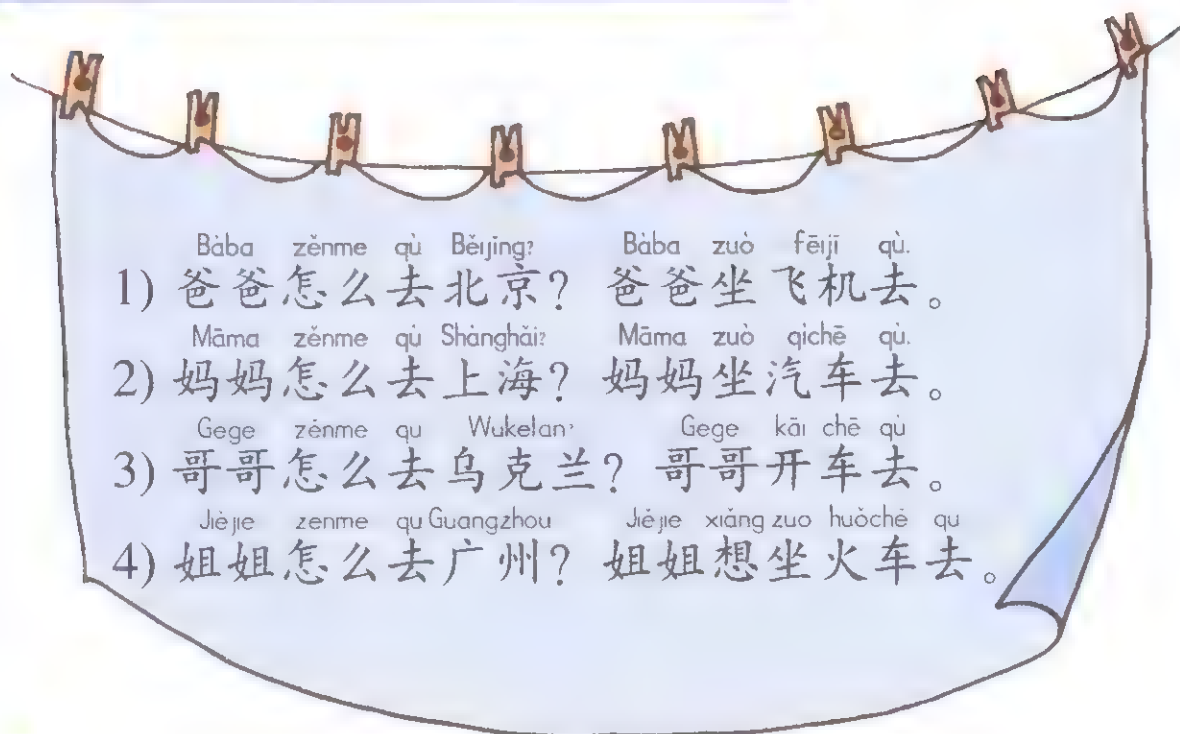 Bàba zěnme qù Běijīng? Bàba zuò fēijī qù.
1) 爸爸怎么去北京? 爸爸坐飞机去。
Māma zěnme qù Shànghǎi? Māma zuò qìchē qù.
2) 妈妈怎么去上海? 妈妈坐汽车去。
Gege zěnme qu Wukelan? Gege kāi chē qù
3) 哥哥怎么去乌克兰? 哥哥开车去。
Jiějie zenme qu Guangzhou Jiějie xiǎng zuo huǒchē qu
4) 姐姐怎么去广州? 姐姐想坐火车去。